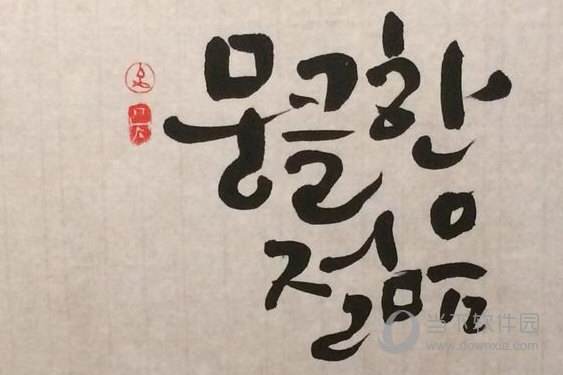 뭉클한
젊음
当下软件园
www.downxia.com